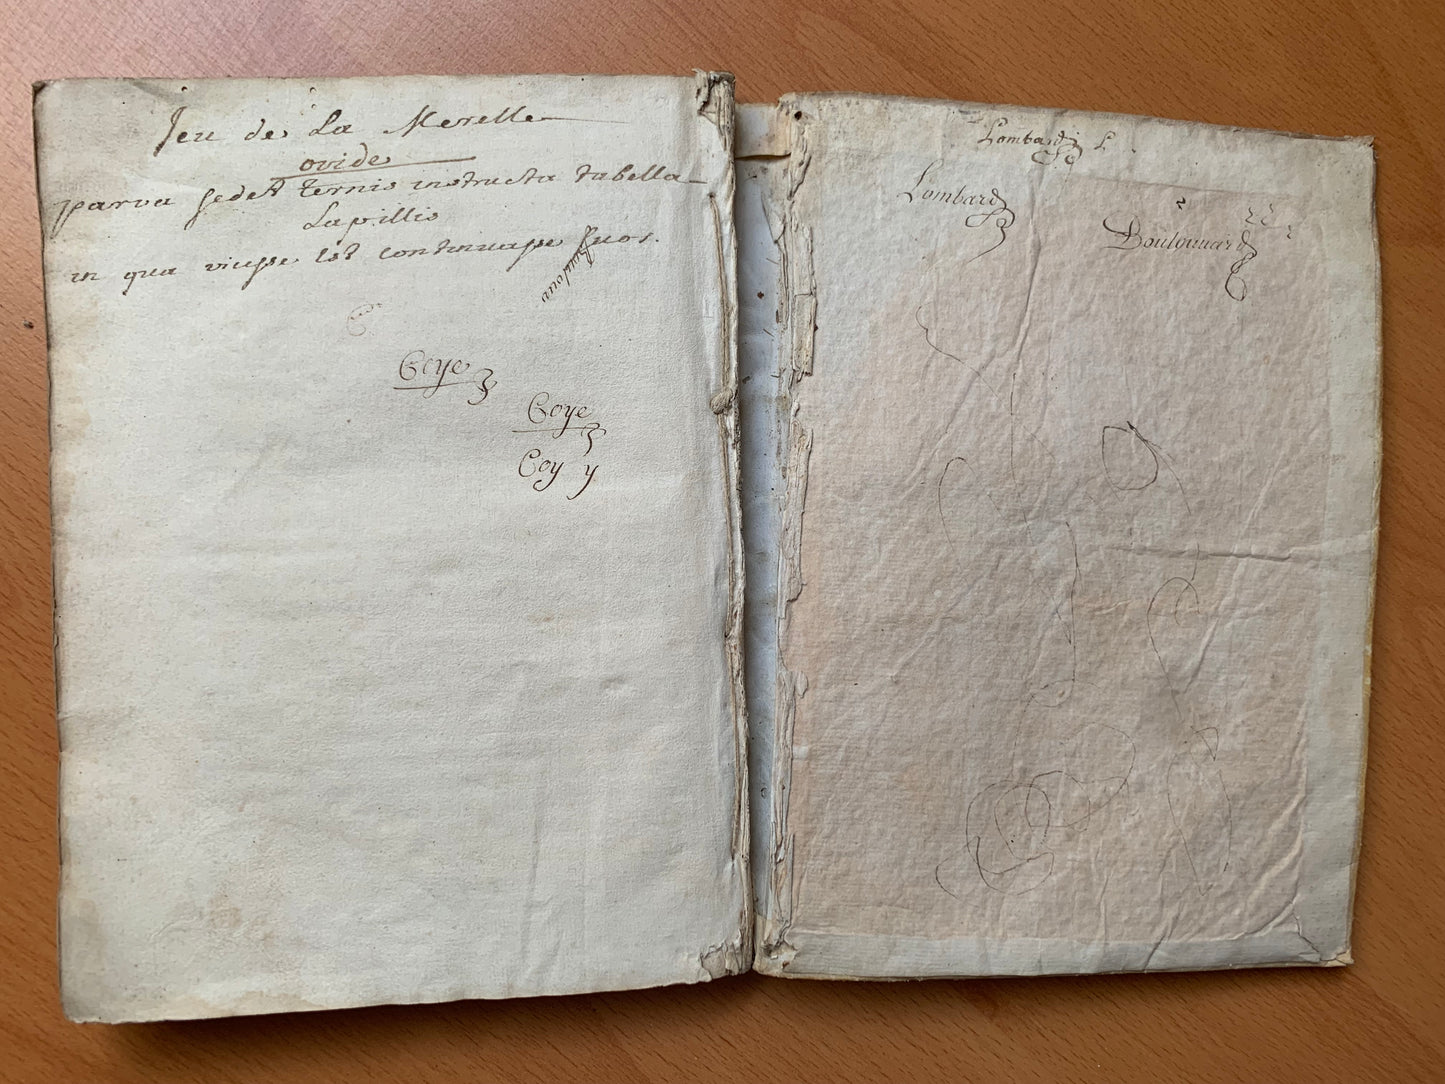 Jeu de La Merelle
ovide
parva sedet ternis instructa tabella
Lapillis
in qua vicisse est continuasse suos.
Coye
Coye
Coy y
Lombard L
Lombard
Boulouuard